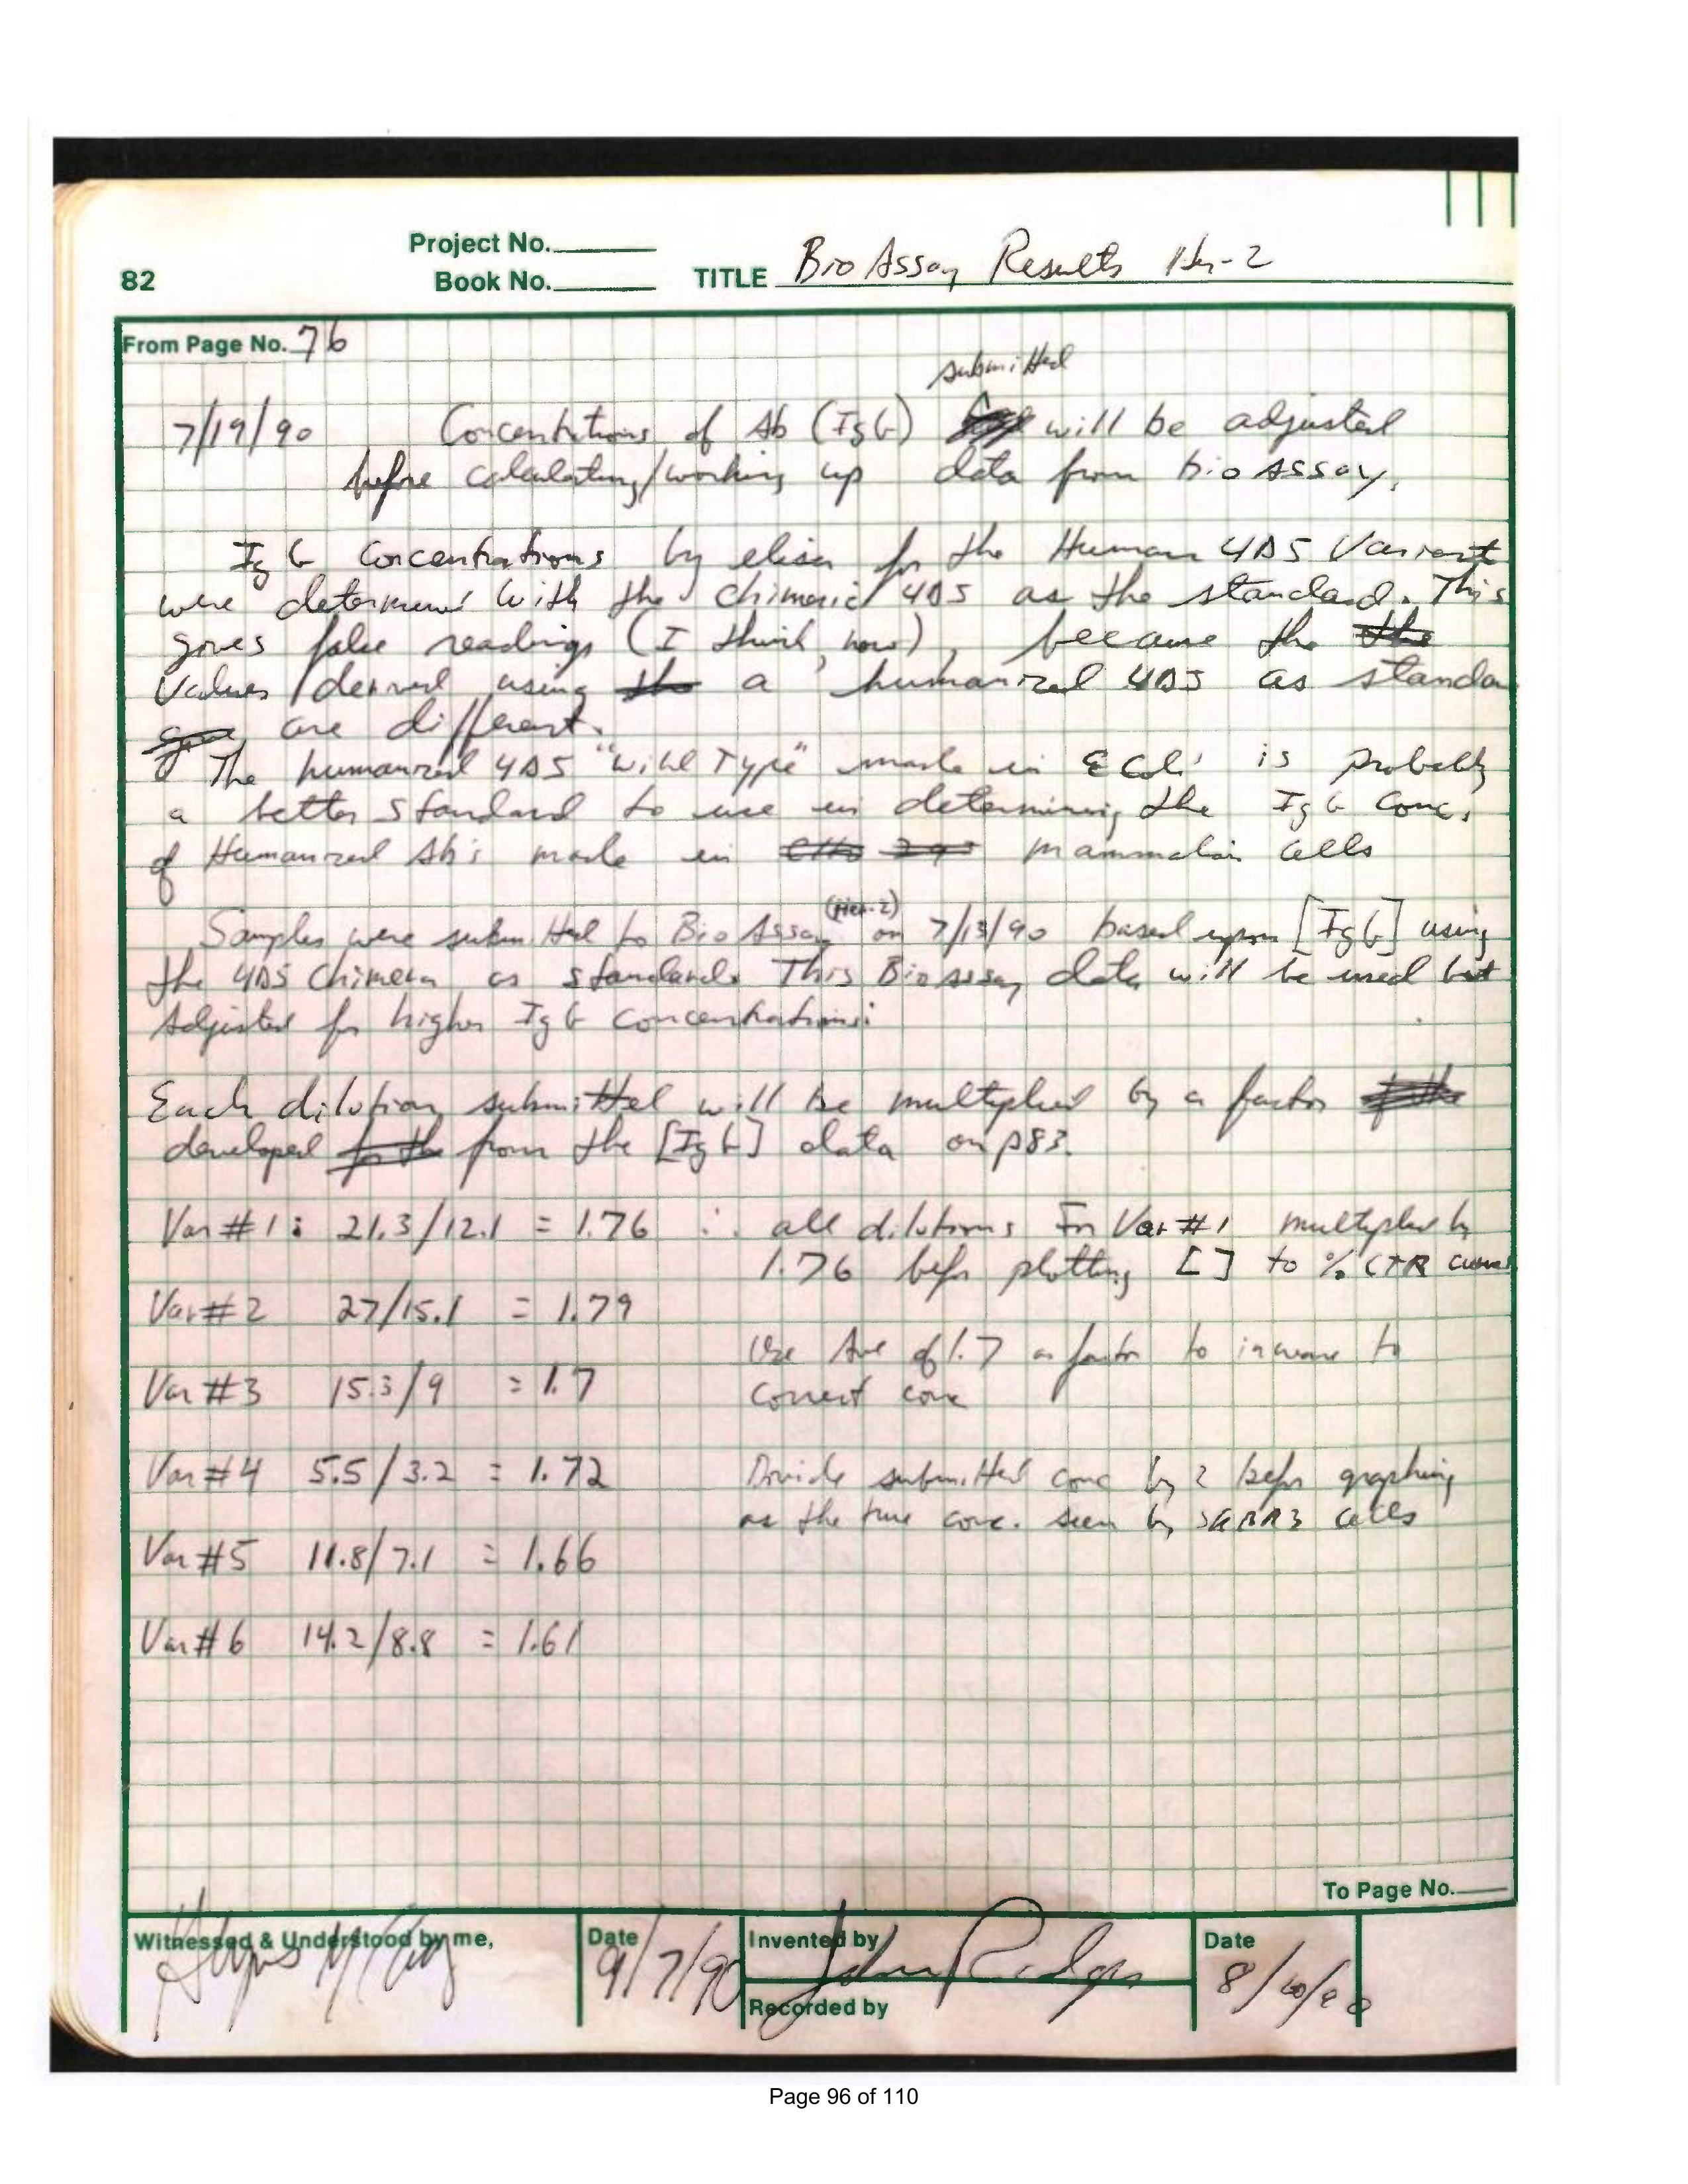 Project No.
82 Book No. TITLE Bio Assay Results Her-2
From Page No. 76
submitted
7/19/90 Concentrations of Ab (IgG) will be adjusted
before calculating/working up data from bioAssay.
IgG Concentrations by elisa for the Human 4D5 Variant
were determined with the chimeric 4D5 as the standard. This
gives false readings (I think, now), because the the
values derived using the a humanized 4D5 as standa
are different.
The humanized 4D5 "wild Type" made in E Coli is probably
a better standard to use in determining the IgG Conc.
of Humanized Ab's made in mammalian cells
(Her-2)
Samples were submitted to BioAssay on 7/13/90 based upon [IgG] using
the 4D5 Chimera as standard. This Bioassay data will be used but
Adjusted for higher IgG concentrations:
Each dilution submitted will be multiplied by a factor
developed for the from the [IgG] data on p83.
Var #1: 21.3/12.1 = 1.76 ∴ all dilutions for Var #1 multiplied by
1.76 before plotting [ ] to % CTR curve
Var #2 27/15.1 = 1.79
Use Ave of 1.7 as factor to increase to
Var #3 15.3/9 = 1.7
correct conc
Var #4 5.5/3.2 = 1.72 Divide submitted conc by 2 before graphing
as the true conc. seen by SKBR3 cells
Var #5 11.8/7.1 = 1.66
Var #6 14.2/8.8 = 1.61
To Page No.
Witnessed & Understood by me, Date 9/7/90 Invented by John Ridgway Date
Recorded by
Page 96 of 110